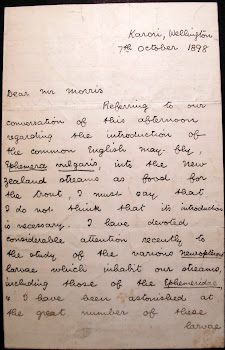 Karori, Wellington
7th October 1898
Dear Mr Morris
Referring to our
conversation of this afternoon
regarding the introduction of
the common English may-fly,
Ephemera vulgaris, into the New
Zealand streams as food for
the trout, I must say that
I do not think that its introduction
is necessary. I have devoted
considerable attention recently to
the study of the various Neuropterous
larvae which inhabit our streams,
including those of the Ephemeridae
& I have been astonished at
the great number of these
larvae